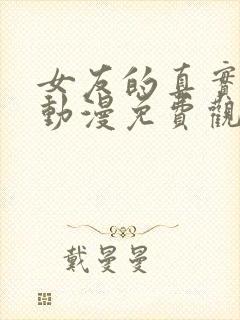 女友的真實
動漫免費觀
戴曼曼